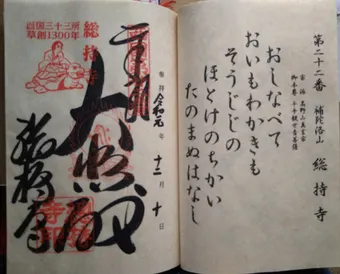 第二十二番 補陀洛山 総持寺
宗派 高野山真言宗
御本尊 千手観世音菩薩
おしなべて
おいもわかきも
そうじじの
ほとけのちかい
たのまぬはなし
西国三十三所
草創1300年
総持寺
奉拝 令和元年 十二月 十日
大悲殿
総持寺